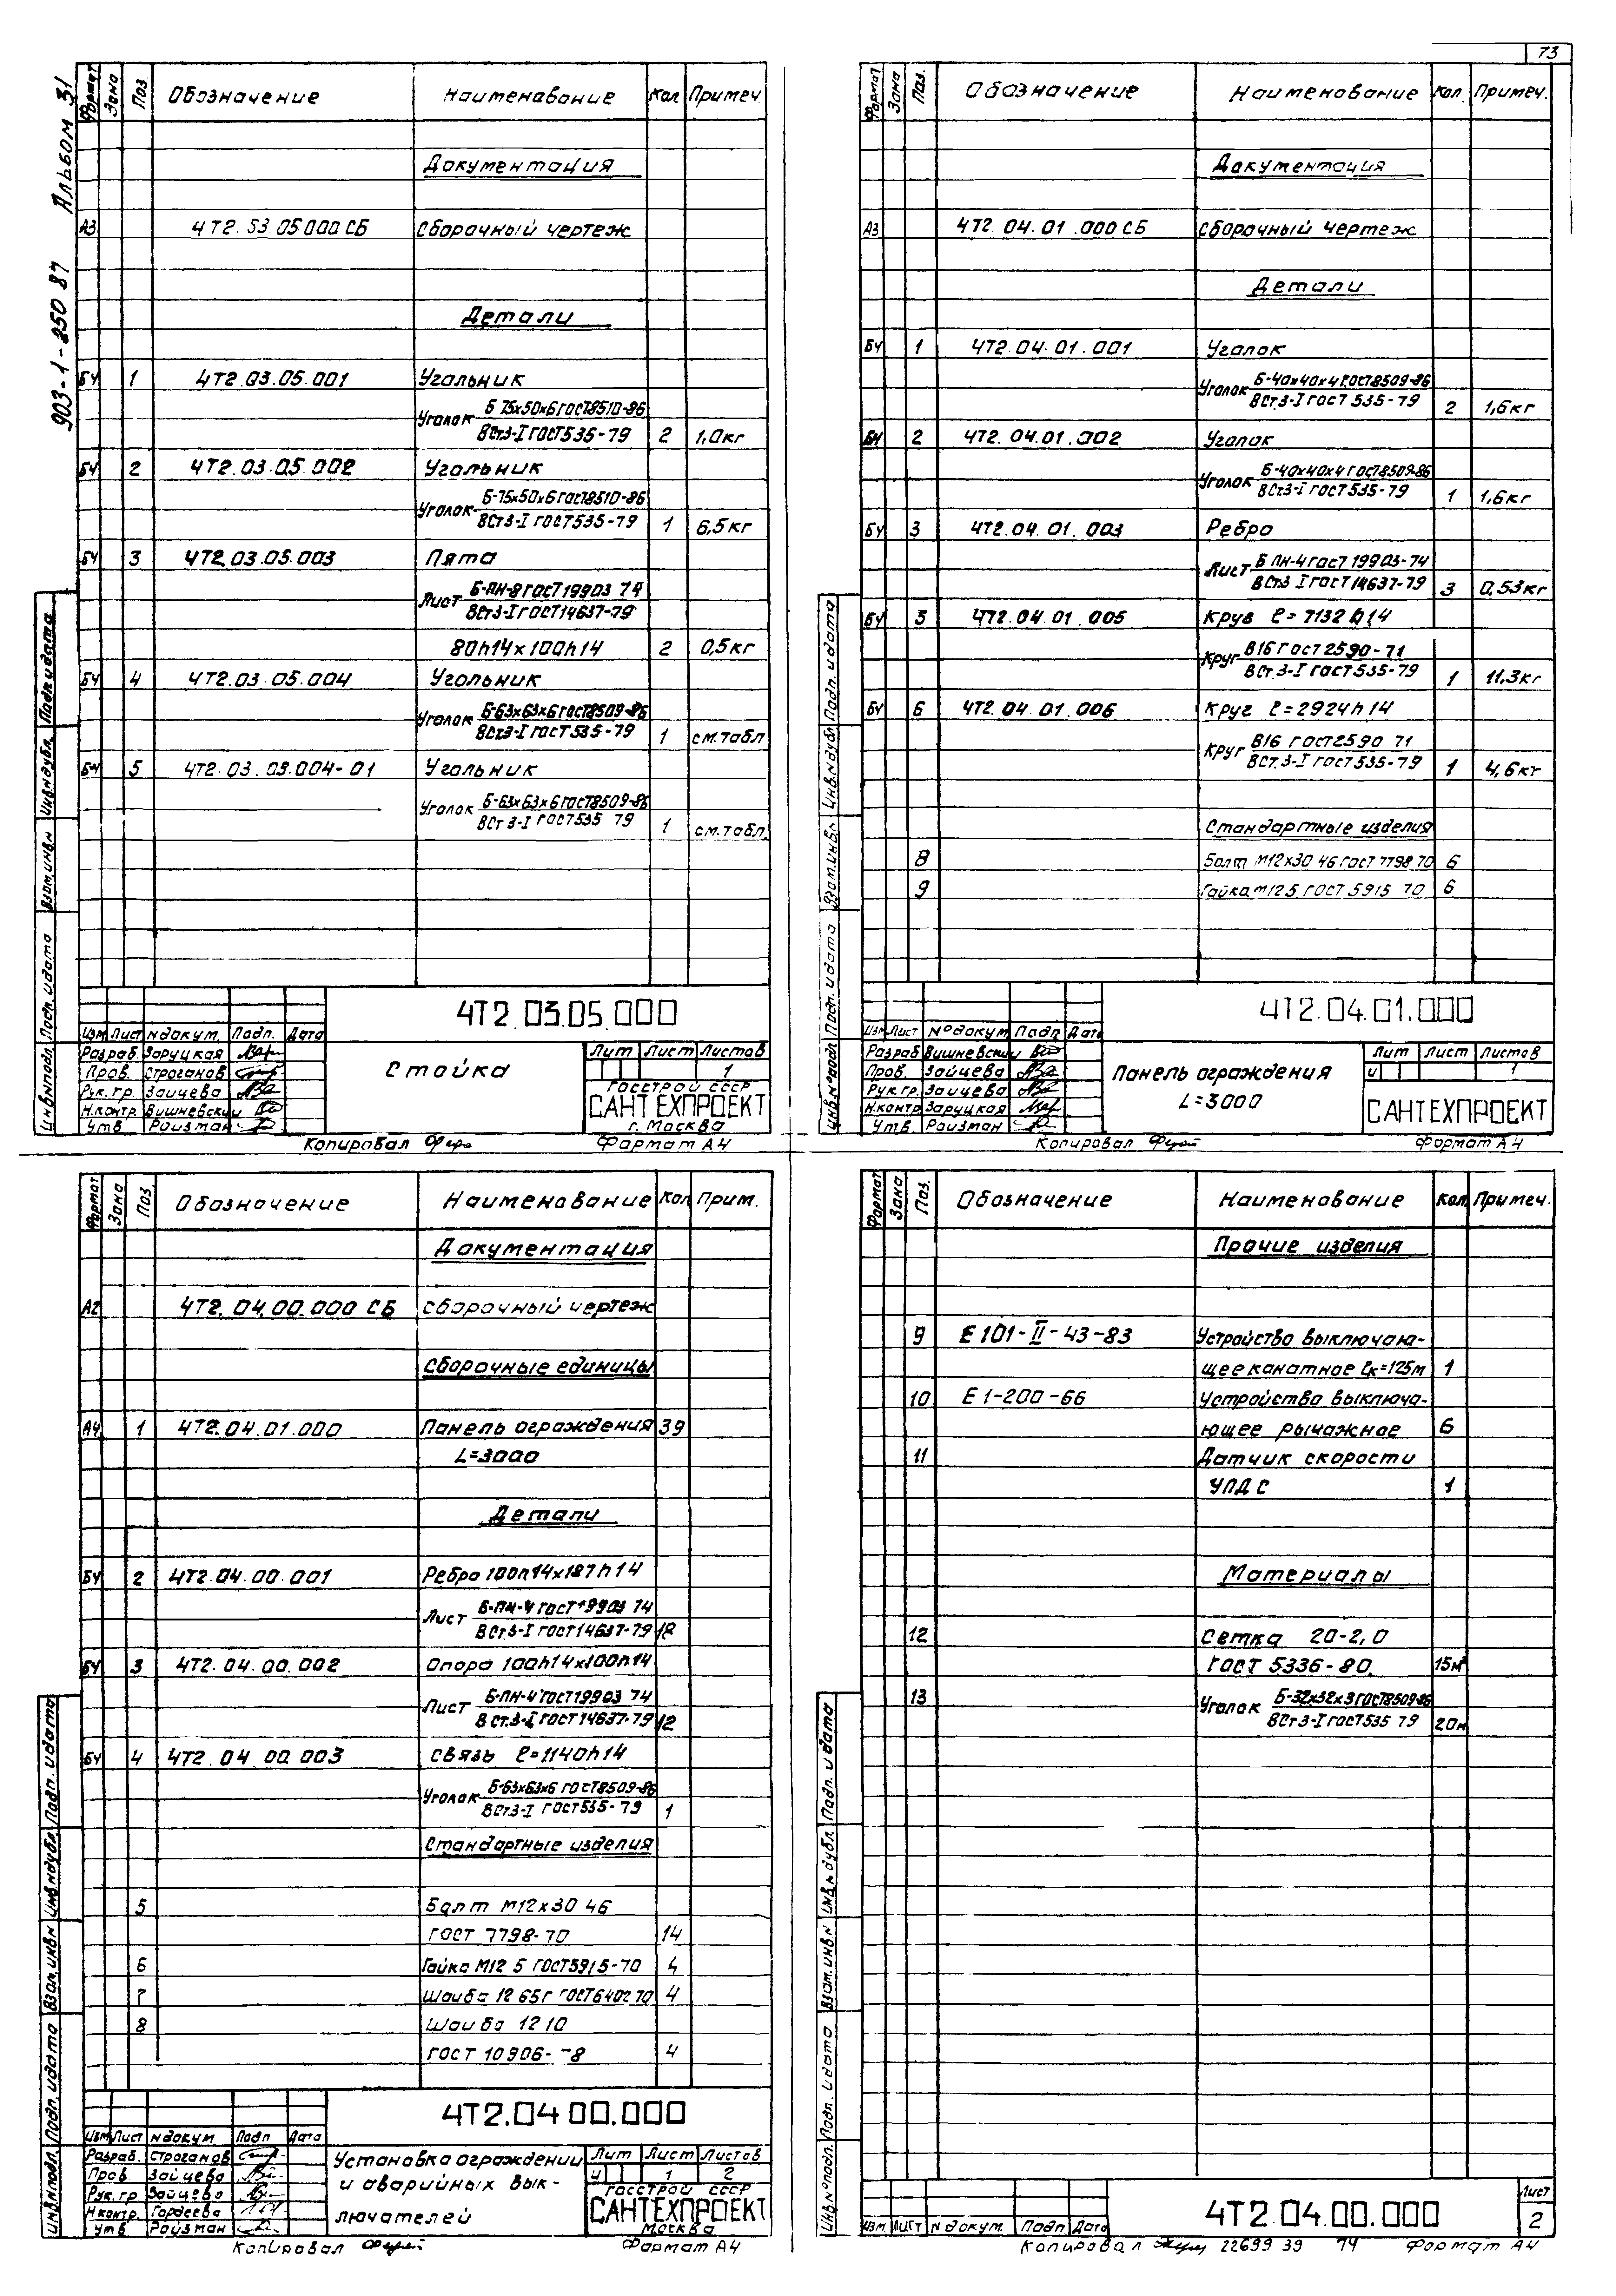 73
Альбом 31
903-1-250 87
Формат Зона Поз Обозначение Наименование Кол Примеч.
Документация
А3 4Т2.53.05.000 СБ Сборочный чертеж
Детали
БЧ 1 4Т2.03.05.001 Угольник
Уголок Б 75х50х6 ГОСТ8510-86
ВСт3-I ГОСТ535-79 2 1,0кг
БЧ 2 4Т2.03.05.002 Угольник
Уголок Б-75х50х6 ГОСТ8510-86
ВСт3-I ГОСТ535-79 1 6,5кг
БЧ 3 4Т2.03.05.003 Пята
Лист Б-ПН-8 ГОСТ19903 74
ВСт3-I ГОСТ14637-79
80h14х100h14 2 0,5кг
БЧ 4 4Т2.03.05.004 Угольник
Уголок Б-63х63х6 ГОСТ8509-86
ВСт3-I ГОСТ535-79 1 см.табл
БЧ 5 4Т2.03.03.004-01 Угольник
Уголок Б-63х63х6 ГОСТ8509-86
ВСт3-I ГОСТ535 79 1 см.табл.
Инв.№подл. Подп. и дата Взам.инв.№ Инв.№дубл. Подп. и дата
4Т2.03.05.000
Изм Лист №докум. Подп. Дата
Разраб. Заруцкая
Пров. Строганов
Рук.гр. Зайцева
Н.контр. Вишневский
Утв. Ройзман
Стойка
Лит Лист Листов
1
ГОССТРОЙ СССР
САНТЕХПРОЕКТ
г. Москва
Копировал Формат А4
Формат Зона Поз. Обозначение Наименование Кол. Примеч.
Документация
А3 4Т2.04.01.000 СБ Сборочный чертеж
Детали
БЧ 1 4Т2.04.01.001 Уголок
Уголок Б-40х40х4 ГОСТ8509-86
ВСт.3-I ГОСТ 535-79 2 1,6кг
БЧ 2 4Т2.04.01.002 Уголок
Уголок Б-40х40х4 ГОСТ8509-86
ВСт3-I ГОСТ535-79 1 1,6кг
БЧ 3 4Т2.04.01.003 Ребро
Лист Б ПН-4 ГОСТ 19903-74
ВСт3 I ГОСТ14637-79 3 0,53кг
БЧ 5 4Т2.04.01.005 Круг ℓ=7132 h14
Круг В16 ГОСТ2590-71
ВСт.3-I ГОСТ535-79 1 11,3кг
БЧ 6 4Т2.04.01.006 Круг ℓ=2924h14
Круг В16 ГОСТ2590 71
ВСт.3-I ГОСТ535-79 1 4,6кг
Стандартные изделия
8 Болт М12х30 46 ГОСТ 7798 70 6
9 Гайка М12 5 ГОСТ 5915 70 6
Инв.№подл. Подп. и дата Взам.инв.№ Инв.№дубл. Подп. и дата
4Т2.04.01.000
Изм Лист №докум Подп Дата
Разраб Вишневский
Пров. Зайцева
Рук.гр. Зайцева
Н.контр Заруцкая
Утв. Ройзман
Панель ограждения
L=3000
Лит Лист Листов
и 1
САНТЕХПРОЕКТ
Копировал Формат А4
Формат Зона Поз Обозначение Наименование Кол Прим.
Документация
А2 4Т2.04.00.000 СБ Сборочный чертеж
Сборочные единицы
А4 1 4Т2.04.01.000 Панель ограждения 39
L=3000
Детали
БЧ 2 4Т2.04.00.001 Ребро 100h14х187h14
Лист Б-ПН-4 ГОСТ19903 74
ВСт.3-I ГОСТ14637-79 18
БЧ 3 4Т2.04.00.002 Опора 100h14х100h14
Лист Б-ПН-4 ГОСТ19903 74
ВСт.3-I ГОСТ14637-79 12
БЧ 4 4Т2.04.00.003 Связь ℓ=1140h14
Уголок Б-63х63х6 ГОСТ8509-86
ВСт.3-I ГОСТ535-79 1
Стандартные изделия
5 Болт М12х30 46
ГОСТ 7798-70 14
6 Гайка М12 5 ГОСТ5915-70 4
7 Шайба 12 65Г ГОСТ6402 70 4
8 Шайба 12 10
ГОСТ 10906-78 4
Инв.№подл. Подп. и дата Взам.инв.№ Инв.№дубл. Подп. и дата
4Т2.04 00.000
Изм Лист №докум Подп Дата
Разраб. Строганов
Пров Зайцева
Рук.гр Зайцева
Н.контр. Гордеева
Утв Ройзман
Установка ограждений
и аварийных вык-
лючателей
Лит Лист Листов
и 1 2
ГОССТРОЙ СССР
САНТЕХПРОЕКТ
Москва
Копировал Формат А4
Формат Зона Поз. Обозначение Наименование Кол. Примеч.
Прочие изделия
9 Е101-II-43-83 Устройство выключаю-
щее канатное ℓк=125м 1
10 Е1-200-66 Устройство выключа-
ющее рычажное 6
11 Датчик скорости
УПДС 1
Материалы
12 Сетка 20-2,0
ГОСТ 5336-80 15м²
13 Уголок Б-32х32х3 ГОСТ8509-86
ВСт3-I ГОСТ535 79 20м
Инв.№подл. Подп. и дата Взам.инв.№ Инв.№дубл Подп. и дата
Изм Лист №докум. Подп Дата
4Т2.04.00.000
Лист
2
Копировал 22699 39 74 Формат А4